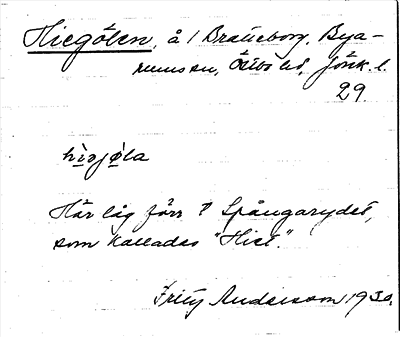 Hiegölen, å / Bratteborg, Bya-
rums sn, Östbo hd, Jönk. l.
29.
hìɘjø̀la
Här låg förr ? Spångarydet,
som kallades "Hiet".
Frity Anderson 1930.